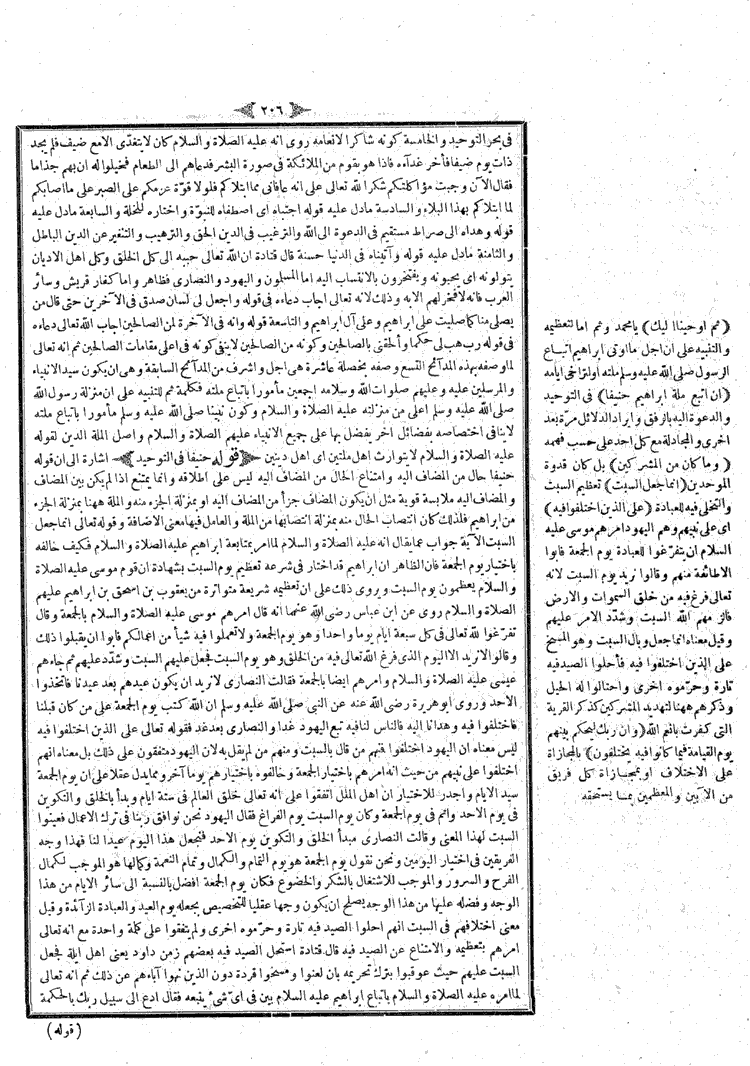 ﴿ ٢٠٦ ﴾
فى بحر التوحيد والخامسة كونه شاكرا لانعامه روى انه عليه الصلاة والسلام كان لا يتغدى الا مع ضيف فلم يجد
ذات يوم ضيفا فأخر غداءه فاذا هو بقوم من الملائكة فى صورة البشر فدعاهم الى الطعام فخيلوا له ان بهم جذاما
فقال الآن وجبت مؤاكلتكم شكرا لله تعالى على انه عافانى مما ابتلاكم فلولا قوة عزمكم على الصبر على ما اصابكم
لما ابتلاكم بهذا البلاء والسادسة مادل عليه قوله اجتباه اى اصطفاه للنبوة و اختاره للخلة و السابعة مادل عليه
قوله وهداه الى صراط مستقيم فى الدعوة الى الله والترغيب فى الدين الحق والترهيب و التنفير عن الدين الباطل
والثامنة مادل عليه قوله وآتيناه فى الدنيا حسنة قال قتادة ان الله تعالى حببه الى كل الخلق وكل اهل الاديان
يتولونه اى يحبونه ويفتخرون بالانتساب اليه اما المسلمون و اليهود و النصارى فظاهر واما كفار قريش وسائر
العرب فانه لا فخر لهم الا به وذلك لانه تعالى اجاب دعاءه فى قوله و اجعل لى لسان صدق فى الآخرين حتى قال من
يصلى منا كما صليت على ابراهيم و على آل ابراهيم و التاسعة قوله وانه فى الآخرة لمن الصالحين اجاب الله تعالى دعاءه
فى قوله رب هب لى حكما وألحقنى بالصالحين وكونه من الصالحين لا ينفى كونه فى اعلى مقامات الصالحين ثم انه تعالى
لما وصفه بهذه المدائح التسع وصفه بخصلة عاشرة هى اجل و اشرف من المدائح السابقة وهى ان يكون سيد الانبياء
و المرسلين عليه و عليهم صلوات الله وسلامه اجمعين مأمورا باتباع ملته فكلمة ثم للتنبيه على ان منزلة رسول الله
صلى الله عليه وسلم اعلى من منزلته عليه الصلاة و السلام وكون نبينا صلى الله عليه وسلم مأمورا باتباع ملته
لا ينافى اختصاصه بفضائل اخر يفضل بها على جميع الانبياء عليهم الصلاة والسلام و اصل الملة الدين لقوله
عليه الصلاة و السلام لا يتوارث اهل ملتين اى اهل دينين ﴿قوله حنيفا فى التوحيد﴾ اشارة الى ان قوله
حنيفا حال من المضاف اليه و امتناع الحال من المضاف اليه ليس على اطلاقه وانما يمتنع اذا لم يكن بين المضاف
و المضاف اليه ملابسة قوية مثل ان يكون المضاف جزأ من المضاف اليه او بمنزلة الجزء منه و الملة ههنا بمنزلة الجزء
من ابراهيم فلذلك كان انتصاب الحال منه بمنزلة انتصابها من الملة و العامل فيها معنى الاضافة و قوله تعالى انما جعل
السبت الآية جواب عما يقال انه عليه الصلاة و السلام لما امر بمتابعة ابراهيم عليه الصلاة و السلام فكيف خالفه
باختيار يوم الجمعة فان الظاهر ان ابراهيم قد اختار فى شرعه تعظيم يوم السبت بشهادة ان قوم موسى عليه الصلاة
و السلام يعظمون يوم السبت ويروى ذلك على ان تعظيمه شريعة متواترة من يعقوب بن اسحق بن ابراهيم عليهم
الصلاة والسلام روى عن ابن عباس رضى الله عنهما انه قال امرهم موسى عليه الصلاة و السلام بالجمعة وقال
تفرغوا لله تعالى فى كل سبعة ايام يوما واحدا و هو يوم الجمعة ولا تعملوا فيه شيأ من اعمالكم فابوا ان يقبلوا ذلك
و قالوا لا نريد الا اليوم الذى فرغ الله تعالى فيه من الخلق وهو يوم السبت فجعل عليهم السبت وشدد عليهم ثم جاءهم
عيسى عليه الصلاة و السلام و امرهم ايضا بالجمعة فقالت النصارى لا نريد ان يكون عيدهم بعد عيدنا فاتخذوا
الاحد وروى ابو هريرة رضى الله عنه عن النبى صلى الله عليه وسلم ان الله كتب يوم الجمعة على من كان قبلنا
فاختلفوا فيه وهدانا اليه فالناس لنا فيه تبع اليهود غدا و النصارى بعد غد فقوله تعالى على الذين اختلفوا فيه
ليس معناه ان اليهود اختلفوا فمنهم من قال بالسبت ومنهم من لم يقل به لان اليهود متفقون على ذلك بل معناه انهم
اختلفوا على نبيهم من حيث انه امرهم باختيار الجمعة و خالفوه باختيارهم يوما آخر ومما يدل عقلا على ان يوم الجمعة
سيد الايام واجدر للاختيار ان اهل الملل اتفقوا على انه تعالى خلق العالم فى ستة ايام وبدأ بالخلق و التكوين
فى يوم الاحد واتم فى يوم الجمعة وكان يوم السبت يوم الفراغ فقال اليهود نحن نوافق ربنا فى ترك الاعمال فعينوا
السبت لهذا المعنى و قالت النصارى مبدأ الخلق و التكوين يوم الاحد فنجعل هذا اليوم عيدا لنا فهذا وجه
الفريقين فى اختيار اليومين ونحن نقول يوم الجمعة هو يوم التمام والكمال و تمام النعمة وكمالها هو الموجب لكمال
الفرح و السرور و الموجب للاشتغال بالشكر والخضوع فكان يوم الجمعة افضل بالنسبة الى سائر الايام من هذا
الوجه و فضله عليها من هذا الوجه يصلح ان يكون وجها عقليا للتخصيص بجعله يوم العيد و العبادة الزائدة وقيل
معنى اختلافهم فى السبت انهم احلوا الصيد فيه تارة وحرموه اخرى ولم يتفقوا على كلمة واحدة مع انه تعالى
امرهم بتعظيمه و الامتناع عن الصيد فيه قال قتادة استحل الصيد فيه بعضهم زمن داود يعنى اهل ايلة فجعل
السبت عليهم حيث عوقبوا بترك تحريمه بان لعنوا و مسخوا قردة دون الذين نهوا آباءهم عن ذلك ثم انه تعالى
لما امره عليه الصلاة و السلام باتباع ابراهيم عليه السلام بين فى اى شئ يتبعه فقال ادع الى سبيل ربك بالحكمة
( قوله )
(ثم اوحينا اليك) يا محمد وثم اما لتعظيمه
و التنبيه على ان اجل ما اوتى ابراهيم اتباع
الرسول صلى الله عليه وسلم ملته او لتراخى ايامه
(ان اتبع ملة ابراهيم حنيفا) فى التوحيد
والدعوة اليه بالرفق وايراد الدلائل مرة بعد
اخرى و المجادلة مع كل احد على حسب فهمه
( وما كان من المشركين) بل كان قدوة
الموحدين (انما جعل السبت) تعظيم السبت
والتخلى فيه للعبادة (على الذين اختلفوا فيه)
اى على نبيهم وهم اليهود امرهم موسى عليه
السلام ان يتفرغوا للعبادة يوم الجمعة فابوا
الا طائفة منهم وقالوا نريد يوم السبت لانه
تعالى فرغ فيه من خلق السموات والارض
فالزمهم الله السبت وشدد الامر عليهم
وقيل معناه انما جعل وبال السبت وهو المسخ
على الذين اختلفوا فيه فأحلوا الصيد فيه
تارة وحرموه اخرى واحتالوا له الحيل
وذكرهم ههنا لتهديد المشركين كذكر القرية
التى كفرت بانعم الله (وان ربك ليحكم بينهم
يوم القيامة فيما كانوا فيه يختلفون) بالمجازاة
على الاختلاف او بمجازاة كل فريق
من الآبين والمعظمين بما يستحقه